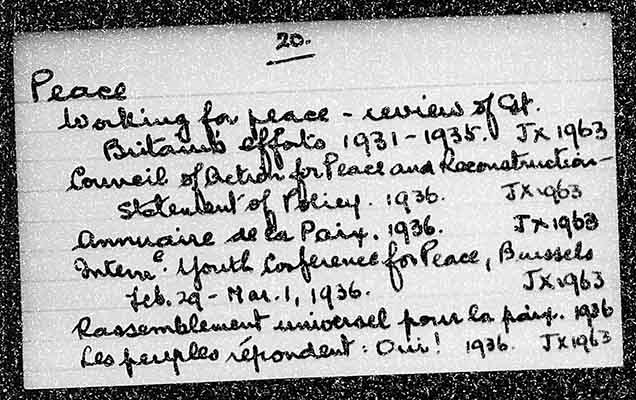 20.
Peace
Working for peace - review of Gt.
Britain's efforts 1931-1935. JX1963
Council of Action for Peace and Reconstruction -
Statement of Policy. 1936. JX1963
Annuaire de la Paix. 1936. JX1963
Youth Conference for Peace, Brussels
Feb. 29 - Mar. 1, 1936. JX1963
Rassemblement universel pour la paix. 1936
Les peuples répondent: Oui! 1936. JX1963